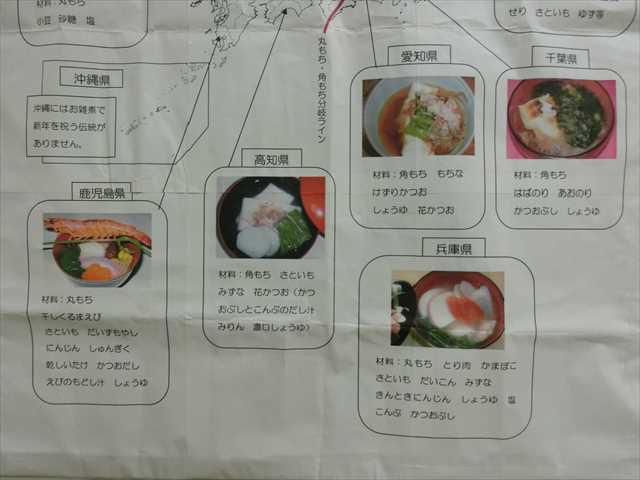 材料：丸もち
小豆 砂糖 塩
せり さといも ゆず等
丸もち・角もち分岐ライン
沖縄県
沖縄にはお雑煮で
新年を祝う伝統が
ありません。
愛知県
材料：角もち もちな
けずりかつお
しょうゆ 花かつお
千葉県
材料：角もち
はばのり あおのり
かつおぶし しょうゆ
高知県
材料：角もち さといも
みずな 花かつお（かつ
おぶしとこんぶのだし汁
みりん 濃口しょうゆ）
鹿児島県
材料：丸もち
干しくるまえび
さといも だいずもやし
にんじん しゅんぎく
乾しいたけ かつおだし
えびのもどし汁 しょうゆ
兵庫県
材料：丸もち とり肉 かまぼこ
さといも だいこん みずな
きんときにんじん しょうゆ 塩
こんぶ かつおぶし